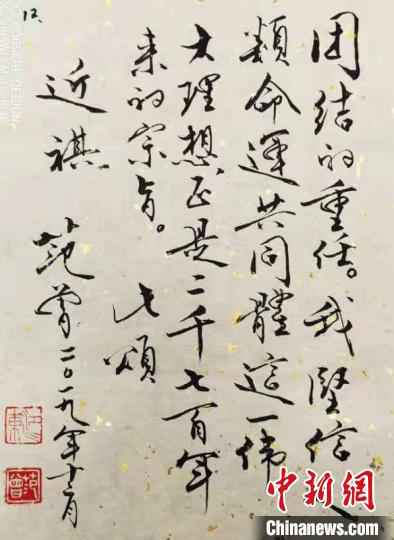 12.
团结的重任。我堅信人
類命運共同體這一偉
大理想,正是二千七百年
来的宗旨。此頌
近祺 范曾二〇一九年十二月
范曾
中新網
Chinanews.com